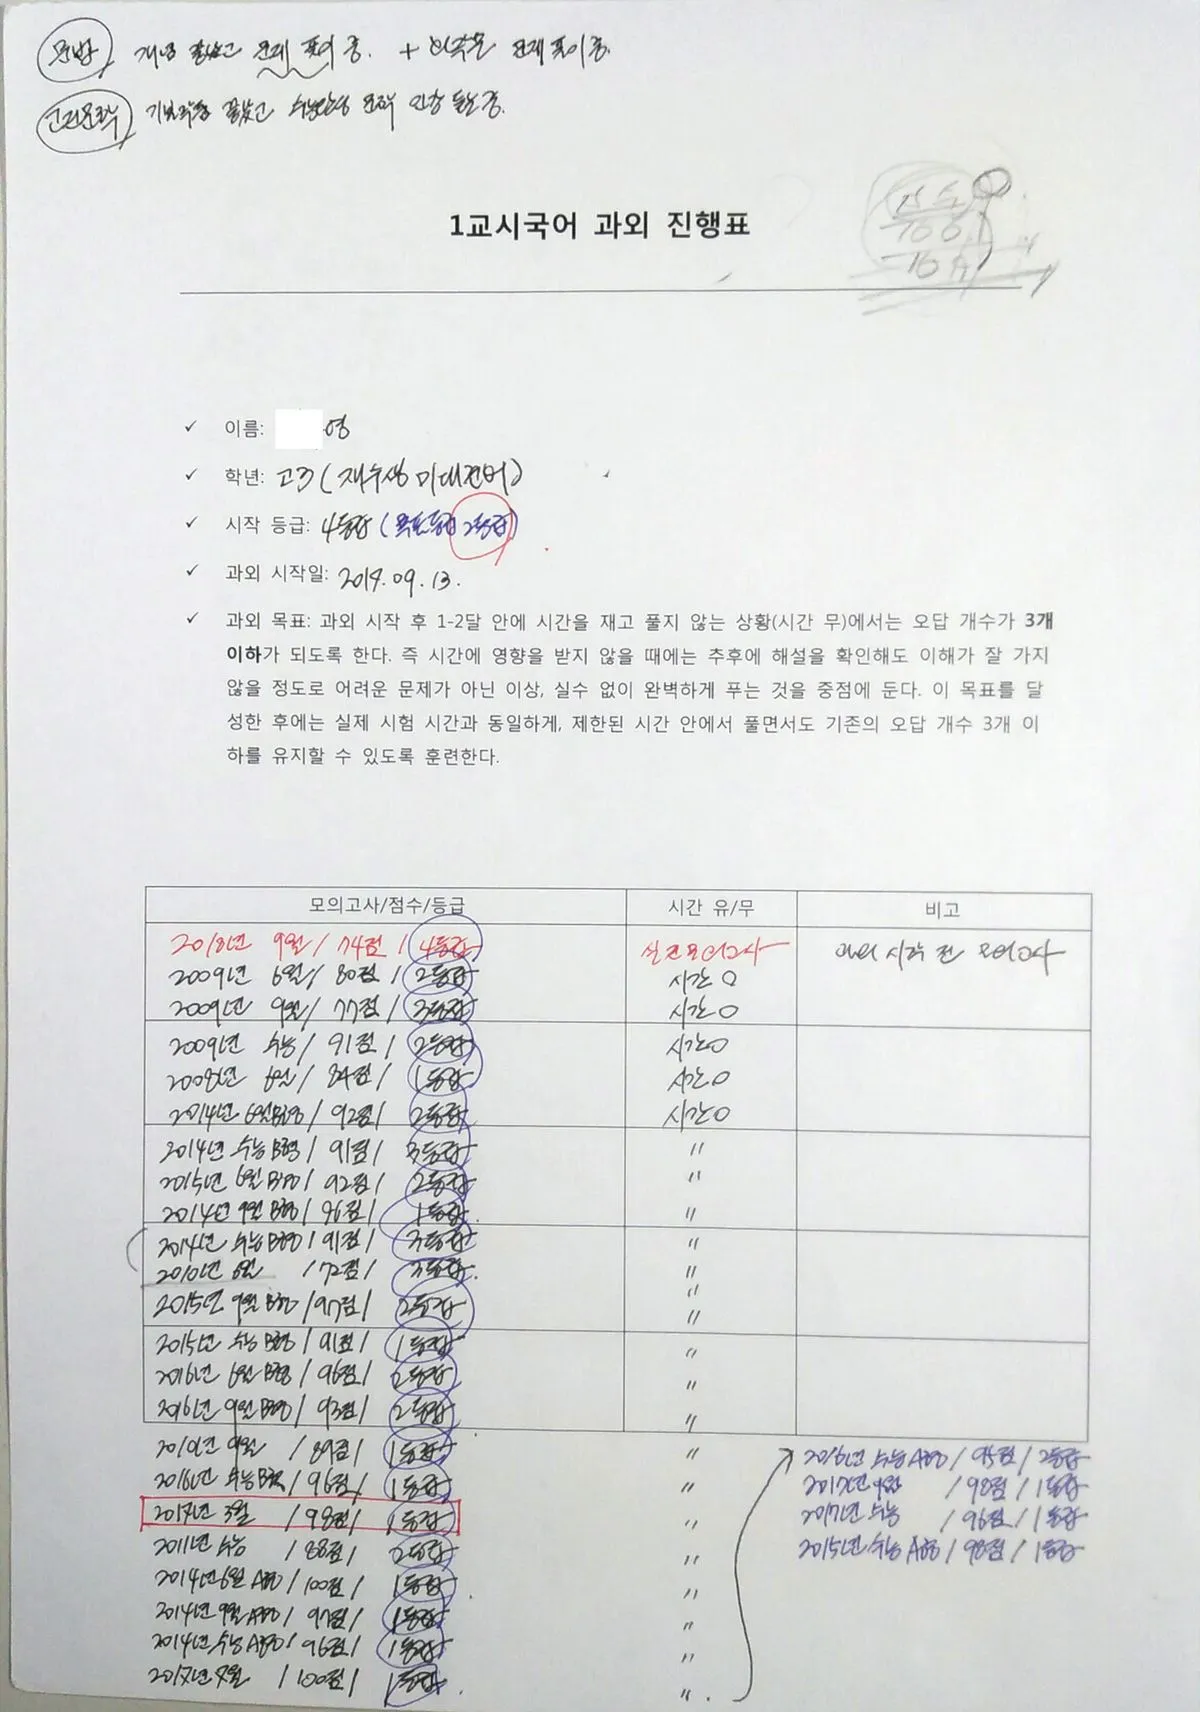 문법 개념 끝났고 문제 풀이 중. + 비문학 문제 풀이 중.
고전문학 기본학습 끝났고 수능완성 문학 인강 듣는 중.
1교시국어 과외 진행표
✓ 이름: 영
✓ 학년: 고3 (재수생 미대준비)
✓ 시작 등급: 4등급 (목표등급 2등급)
✓ 과외 시작일: 2017.09.13.
✓ 과외 목표: 과외 시작 후 1-2달 안에 시간을 재고 풀지 않는 상황(시간 무)에서는 오답 개수가 3개
이하가 되도록 한다. 즉 시간에 영향을 받지 않을 때에는 추후에 해설을 확인해도 이해가 잘 가지
않을 정도로 어려운 문제가 아닌 이상, 실수 없이 완벽하게 푸는 것을 중점에 둔다. 이 목표를 달
성한 후에는 실제 시험 시간과 동일하게, 제한된 시간 안에서 풀면서도 기존의 오답 개수 3개 이
하를 유지할 수 있도록 훈련한다.
모의고사/점수/등급 시간 유/무 비고
2018년 9월 / 74점 / 4등급 실전모의고사 과외 시작 전 모의고사
2009년 6월 / 80점 / 2등급 시간 O
2009년 9월 / 77점 / 3등급 시간 O
2009년 수능 / 91점 / 2등급 시간 O
2008년 6월 / 84점 / 1등급 시간 O
2014년 6월B형 / 92점 / 2등급 시간 O
2014년 수능 B형 / 91점 / 3등급 〃
2015년 6월 B형 / 92점 / 2등급 〃
2014년 9월 B형 / 96점 / 1등급 〃
2014년 수능 B형 / 91점 / 3등급 〃
2010년 6월 / 72점 / 3등급 〃
2015년 9월 B형 / 97점 / 2등급 〃
2015년 수능 B형 / 91점 / 1등급 〃
2016년 6월 B형 / 96점 / 2등급 〃
2016년 9월 B형 / 93점 / 2등급 〃
2010년 9월 / 89점 / 1등급 〃
2016년 수능 B형 / 96점 / 1등급 〃
2017년 3월 / 98점 / 1등급 〃
2011년 수능 / 88점 / 2등급 〃
2014년 6월 A형 / 100점 / 1등급 〃
2014년 9월 A형 / 97점 / 1등급 〃
2014년 수능 A형 / 96점 / 1등급 〃
2017년 7월 / 100점 / 1등급 〃
2016년 수능 A형 / 95점 / 2등급
2017년 9월 / 98점 / 1등급
2017년 수능 / 96점 / 1등급
2015년 수능 A형 / 98점 / 1등급